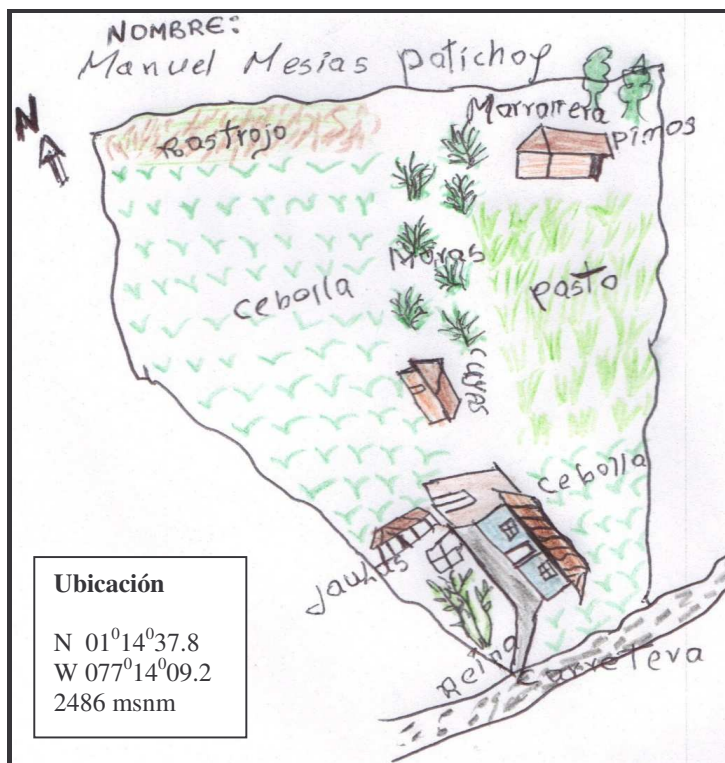 NOMBRE:
Manuel Mesias Patichoy
N
Rastrojo
Marranera
pinos
Moras
Cebolla
pasto
cuyes
Cebolla
Jaulas
Reina
Carretera
Ubicación
N 01⁰14⁰37.8
W 077⁰14⁰09.2
2486 msnm